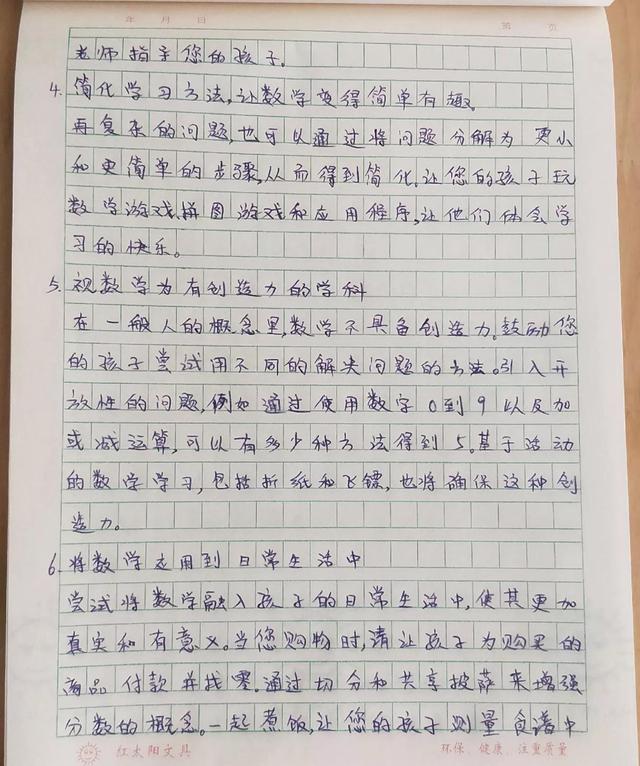 年 月 日 第 页
老师指导您的孩子。
4. 简化学习方法,让数学变得简单有趣。
再复杂的问题,也可以通过将问题分解为更小
和更简单的步骤,从而得到简化。让您的孩子玩
数学游戏、拼图游戏和应用程序,让他们体会学
习的快乐。
5. 视数学为有创造力的学科
在一般人的概念里,数学不具备创造力。鼓励您
的孩子尝试用不同的解决问题的方法。引入开
放性的问题,例如通过使用数字0到9以及加
或减运算,可以有多少种方法得到5。基于活动
的数学学习,包括折纸和飞镖,也将确保这种创
造力。
6. 将数学应用到日常生活中
尝试将数学融入孩子的日常生活中,使其更加
真实和有意义。当您购物时,请让孩子为购买的
商品付款并找零。通过切分和共享披萨来增强
分数的概念。一起煮饭,让您的孩子测量食谱中
红太阳文具 环保、健康、注重质量